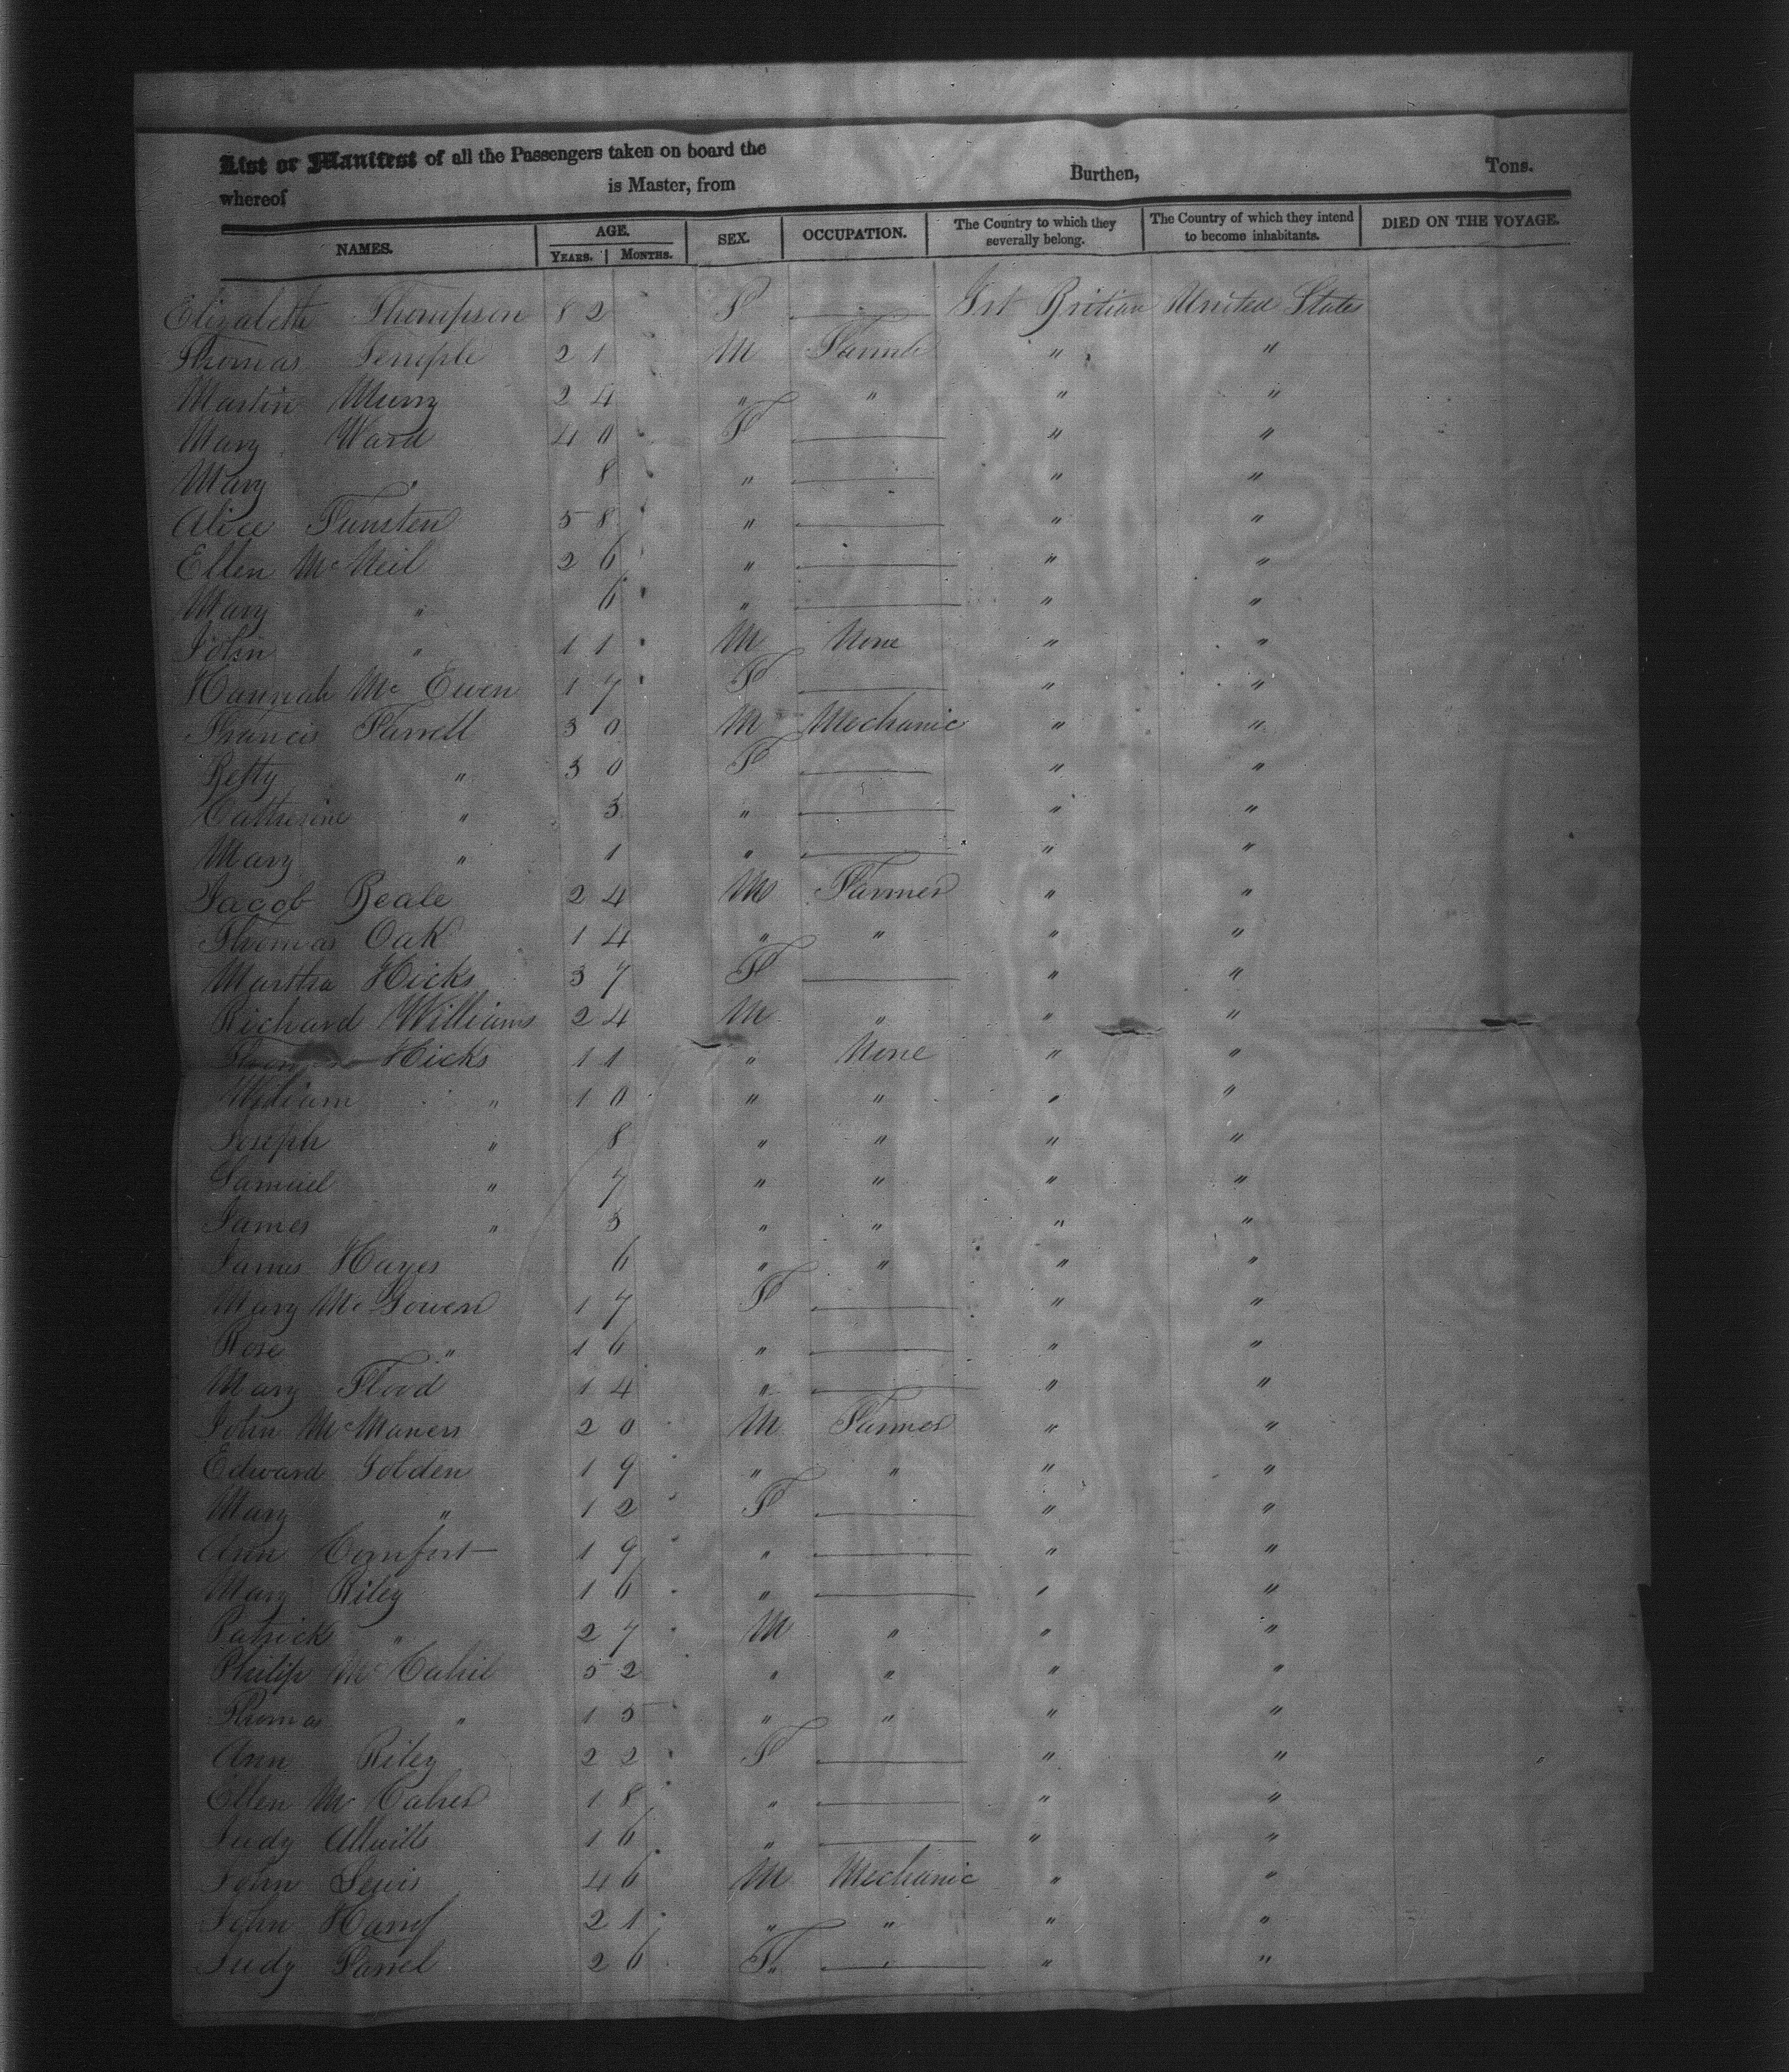 List or Manifest of all the Passengers taken on board the Burthen, Tons.
whereof is Master, from
NAMES. AGE. YEARS. MONTHS. SEX. OCCUPATION. The Country to which they severally belong. The Country of which they intend to become inhabitants. DIED ON THE VOYAGE.
Elizabeth Thompson 82 F — Grt Britian United States
Thomas Temple 21 M " "
Martin Murry 24 " " " "
Mary Ward 40 F — " "
Mary " 8 " — " "
Alice Funsten 58 " — " "
Ellen McNeil 26 " — " "
Mary " 6 " — " "
John " 11 M None " "
Hannah Mc Ewen 17 F — " "
Francis Farrell 30 M Mechanic " "
Betty " 30 F — " "
Catherine " 3 " — " "
Mary " 1 " — " "
Jacob Beale 24 M Farmer " "
Thomas Oak 14 " " " "
Martha Hicks 37 F — " "
Richard Williams 24 M " " "
Hicks 11 " None " "
William " 10 " " " "
Joseph " 8 " " " "
Samuel " 7 " " " "
James " 3 " " " "
James Hayes 6 " " " "
Mary Mc Gowen 17 F — " "
Rose " 16 " — " "
Mary Flood 14 " — " "
John McManers 20 M Farmer " "
Edward Golden 19 " " " "
Mary " 12 F — " "
Ann Comfort 19 " — " "
Mary Riley 16 " — " "
Patrick " 27 M " " "
Philip Mc Cahil 52 " " " "
Thomas " 15 " " " "
Ann Riley 22 F — " "
Ellen Mc 18 " — " "
Judy 16 " — " "
John Lewis 46 M Mechanic " "
John 21 " " " "
Judy Farrel 26 F — " "